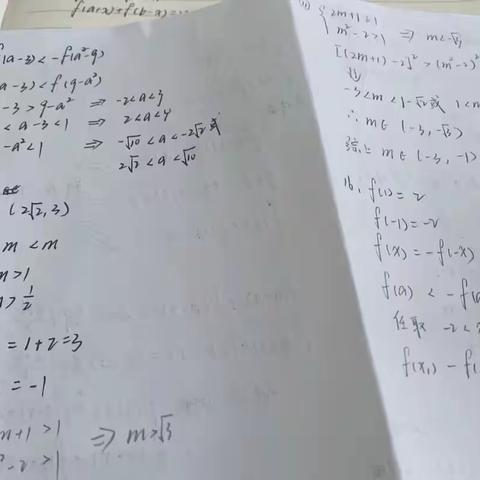 f(a+x)+f(b-x)=
(a-3)<-f(a²-9)
a-3)<f(9-a²)
-3>9-a² ⇒ -2<a<3
<a-3<1 ⇒ 2<a<4
-a²<1 ⇒ -√10<a<-2√2 或
2√2<a<√10
(2√2,3)
m<m
m>1
>1/2
=1+2=3
=-1
m+1>1
²-2>1 ⇒ m>√3
{2m+1≥1
m²-2>1 ⇒ m<-√3
[(2m+1)-2]²>(m²-2)²
⇓
-3<m<1-√2 或 1<m
∴ m∈(-3,-√3)
综上 m∈(-3,-1)
16. f(1)=2
f(-1)=-2
f(x)=-f(-x)
f(a)<-f(
任取 -2<
f(x₁)-f(